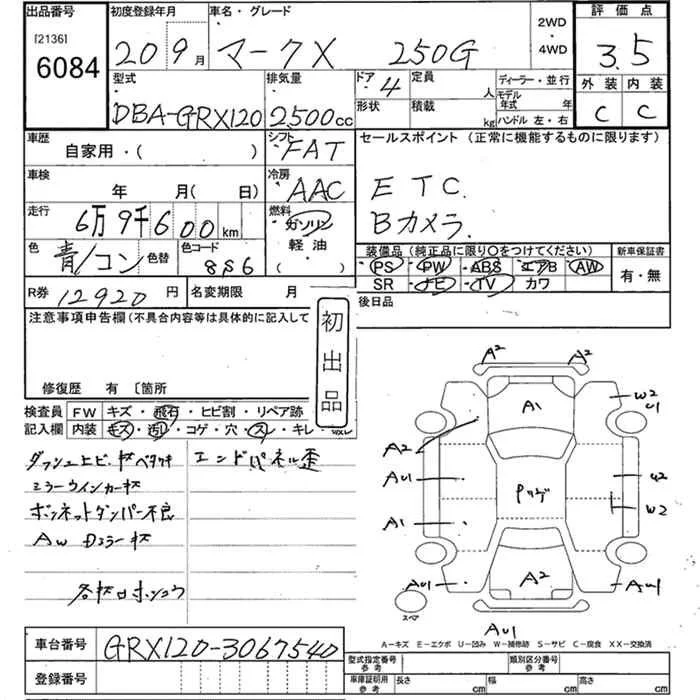 出品番号 初度登録年月 車名・グレード 2WD・4WD 評価点
[2136] 6084 20 9月 マークX 250G 3.5
型式 排気量 ドア 4 定員 人 ディーラー・並行 外装 内装
DBA-GRX120 2500cc 形状 積載 kg モデル年式 年 ハンドル 左・右 C C
車歴 自家用・( ) シフト FAT セールスポイント (正常に機能するものに限ります)
車検 年 月( 日) 冷房 AAC ETC.
走行 6万9千600km 燃料 ガソリン 軽油 ( ) Bカメラ.
色 青/コン 色替 色コード 8S6
装備品 (純正品に限り○をつけてください) 新車保証書
PS PW ABS エアB AW 有・無
SR ナビ TV カワ
R券 12920円 名変期限 月 後日品
注意事項申告欄(不具合内容等は具体的に記入して
初出品
修復歴 有 〔箇所
検査員 FW キズ・飛石・ヒビ割・リペア跡
記入欄 内装 キズ・汚れ・コゲ・穴・スレ・キレ・
エンドパネル歪
ミラーウインカー
ボンネットダンパー不良
AW
A2 A2
A1
W2
U1
A2
AU1
U2
A1
W2
AU1
A2
AU1
スペア
A…キズ E…エクボ U…凹み W…補修跡 S…サビ C…腐食 XX…交換済
車台番号 GRX120-3067540
登録番号
型式指定番号 参考 類別区分番号 参考
車庫証明用 参考 長さ cm 幅 cm 高さ cm